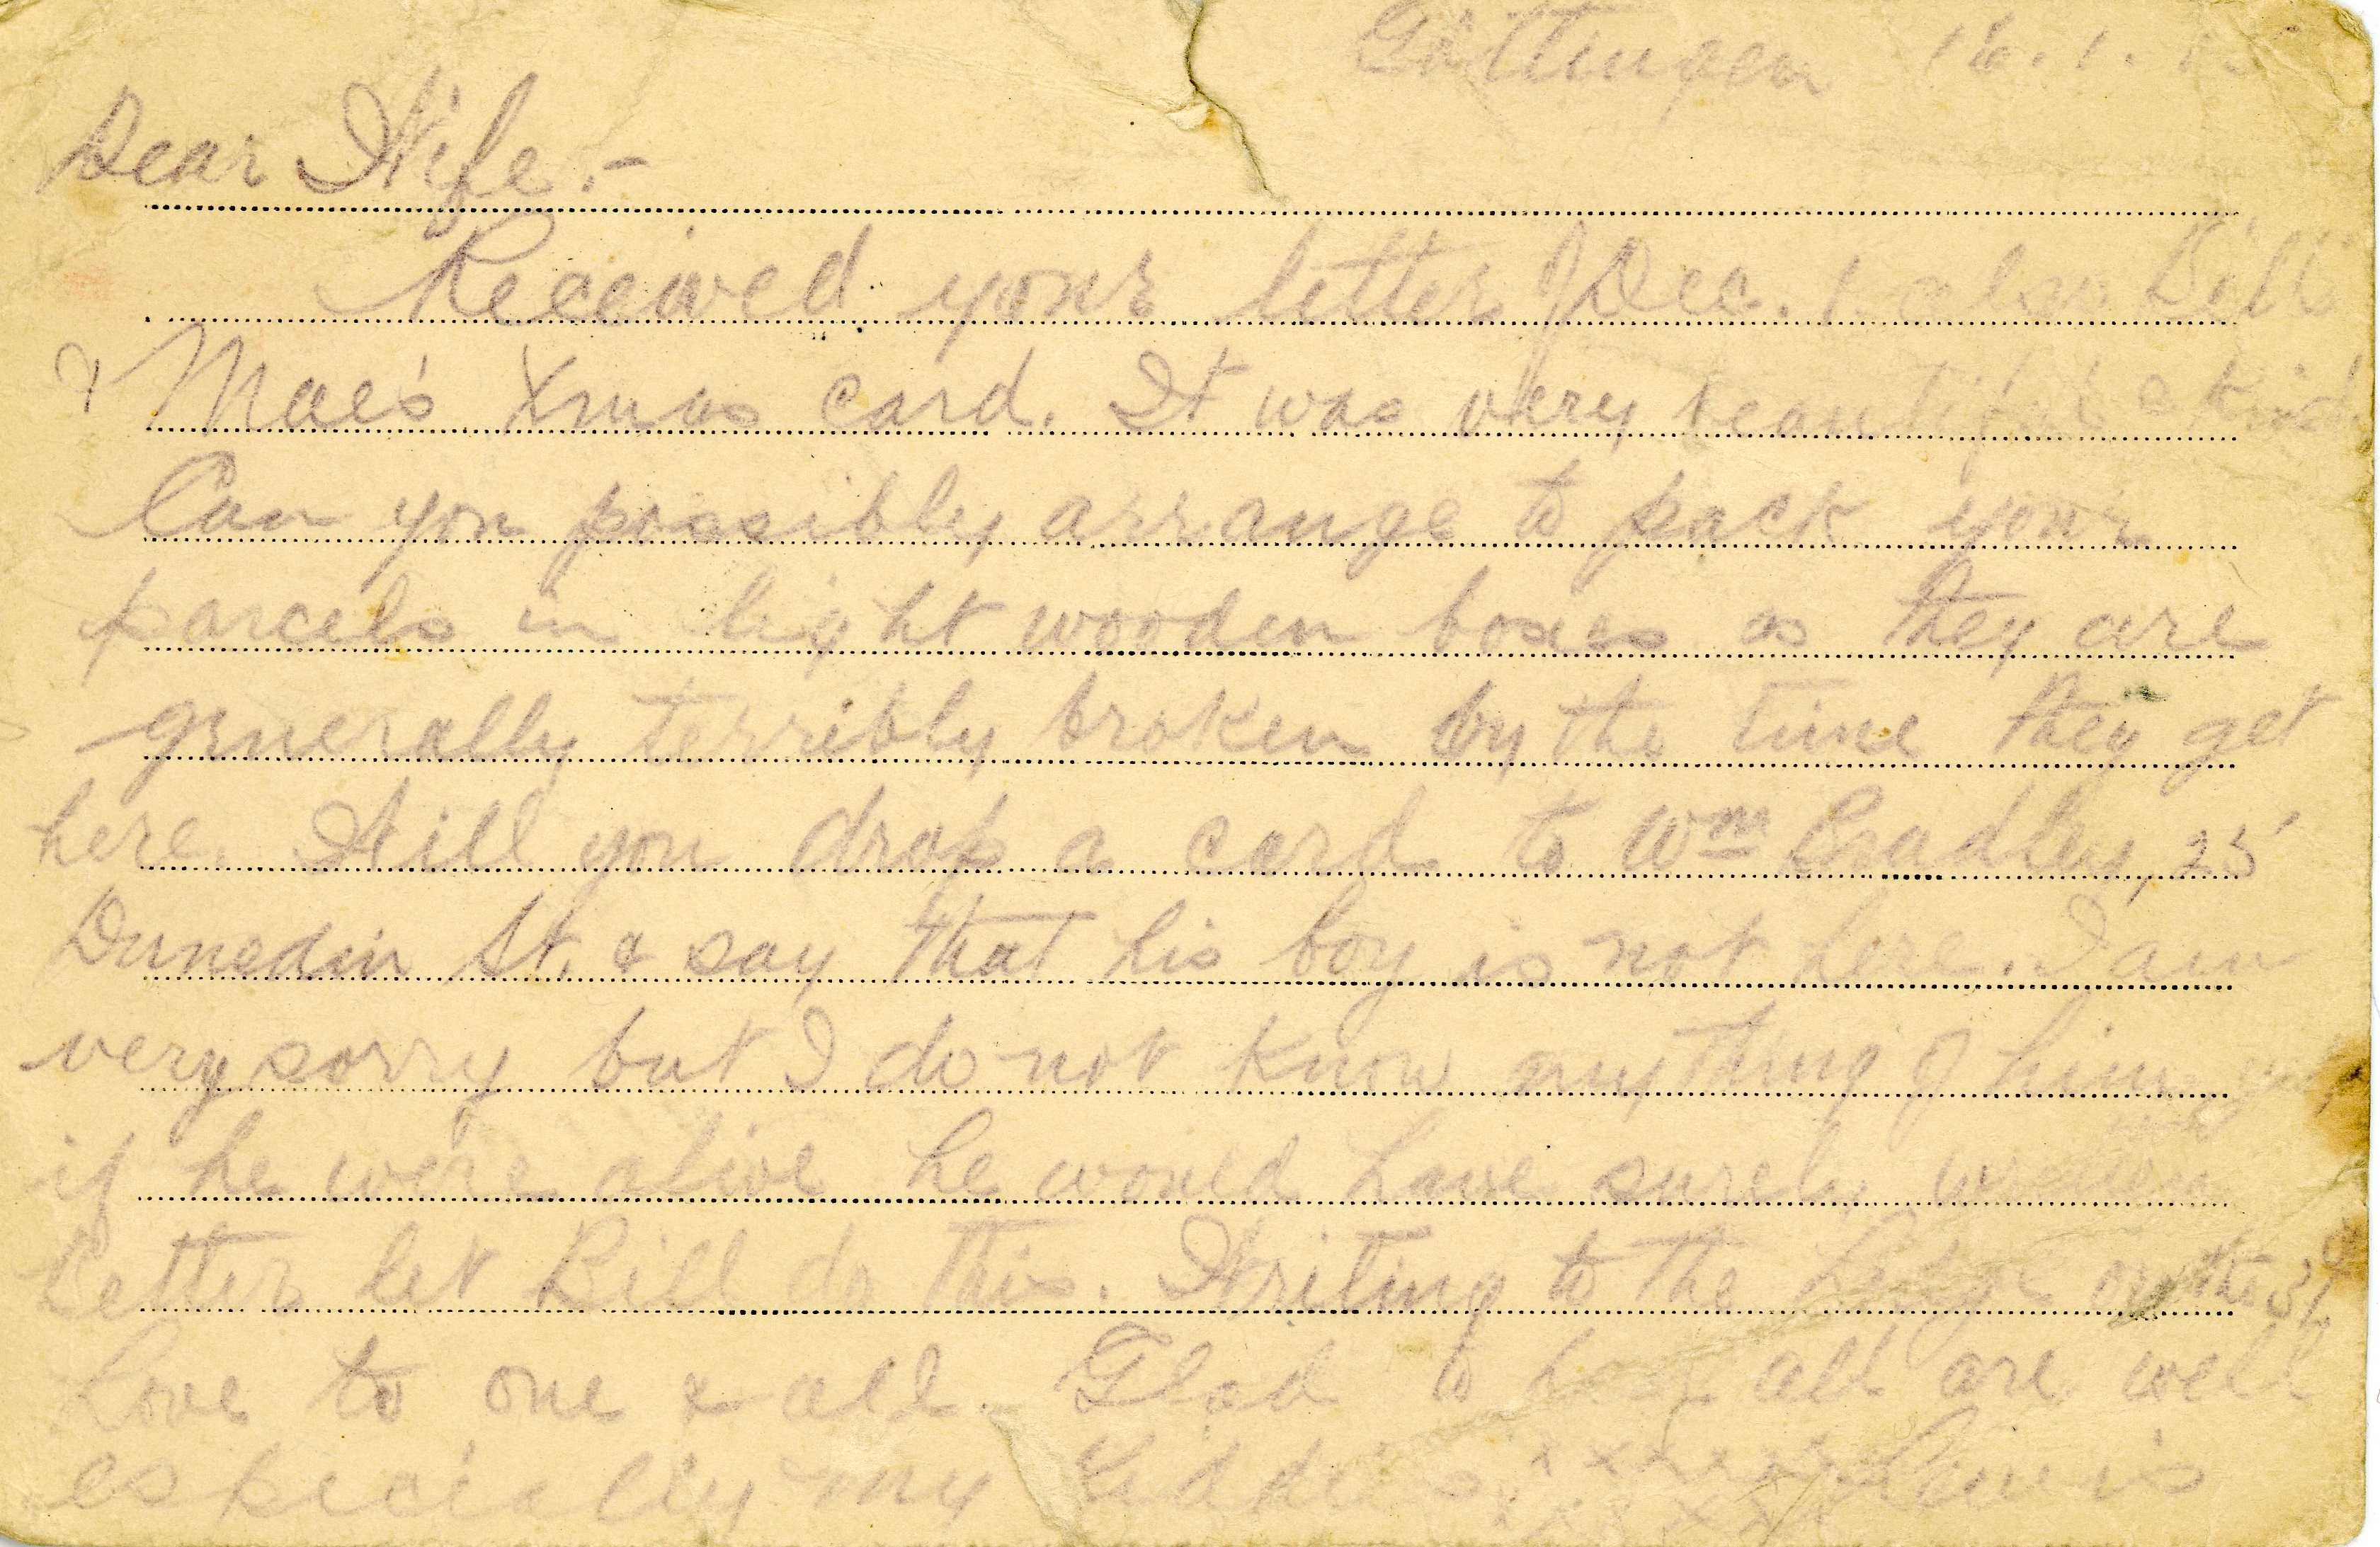 Göttingen 16.1.
Dear Wife.-
Received your letter of Dec. 1 also Bill
& Mae's Xmas card. It was very beautiful & kind
Can you possibly arrange to pack your
parcels in light wooden boxes as they are
generally terribly broken by the time they get
here. Will you drop a card to Wm Bradley, 25
Dunedin St. & say that his boy is not here. I am
very sorry but I do not know anything of him
if he were alive he would have surely written
Better let Bill do this. Writing to the Lodge on the 31
Love to one & all. Glad to hear all are well
especially my kiddies. Lewis